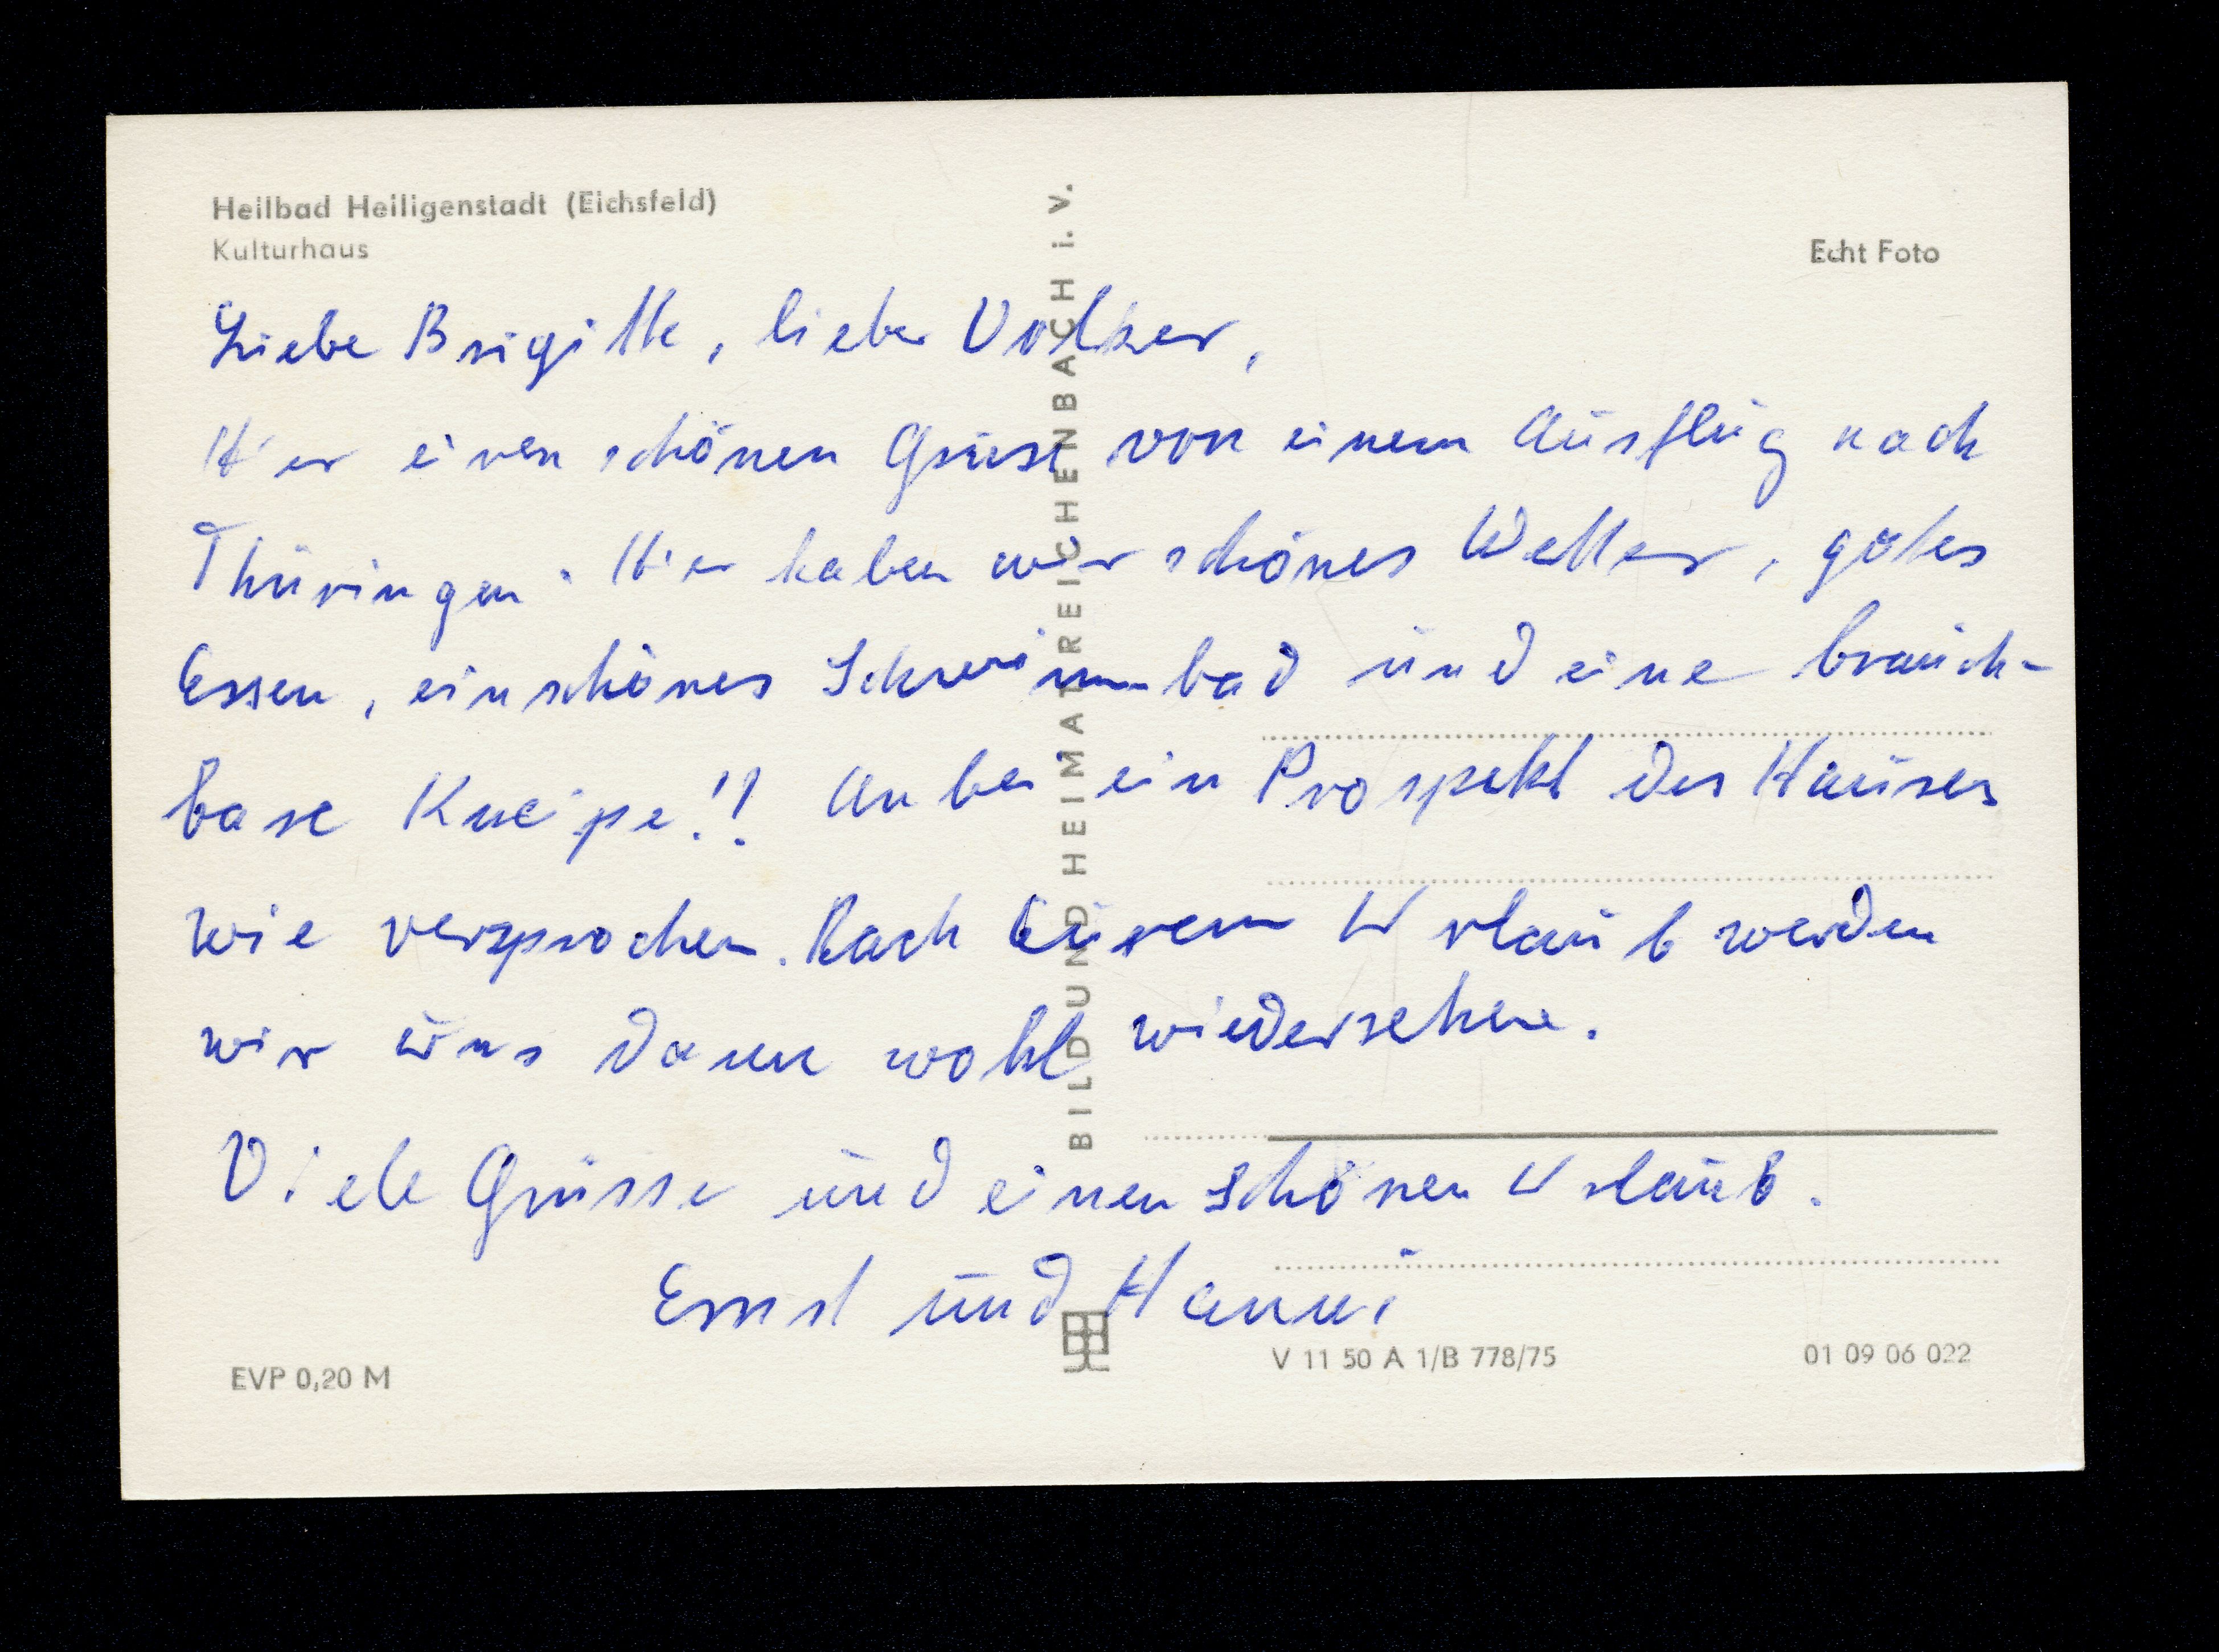 Heilbad Heiligenstadt (Eichsfeld)
Kulturhaus
Echt Foto
Liebe Brigitte, lieber Volker,
Hier einen schönen Gruss von einem Ausflug nach
Thüringen. Hier haben wir schönes Wetter, gutes
Essen, ein schönes Schwimmbad und eine brauch-
bare Kneipe!! Anbei ein Prospekt des Hauses
wie versprochen. Nach Eurem Urlaub werden
wir uns dann wohl wiedersehen.
Viele Grüsse und einen schönen Urlaub.
Ernst und Hanni
BILD UND HEIMAT REICHENBACH i. V.
EVP 0,20 M
V 11 50 A 1/B 778/75
01 09 06 022